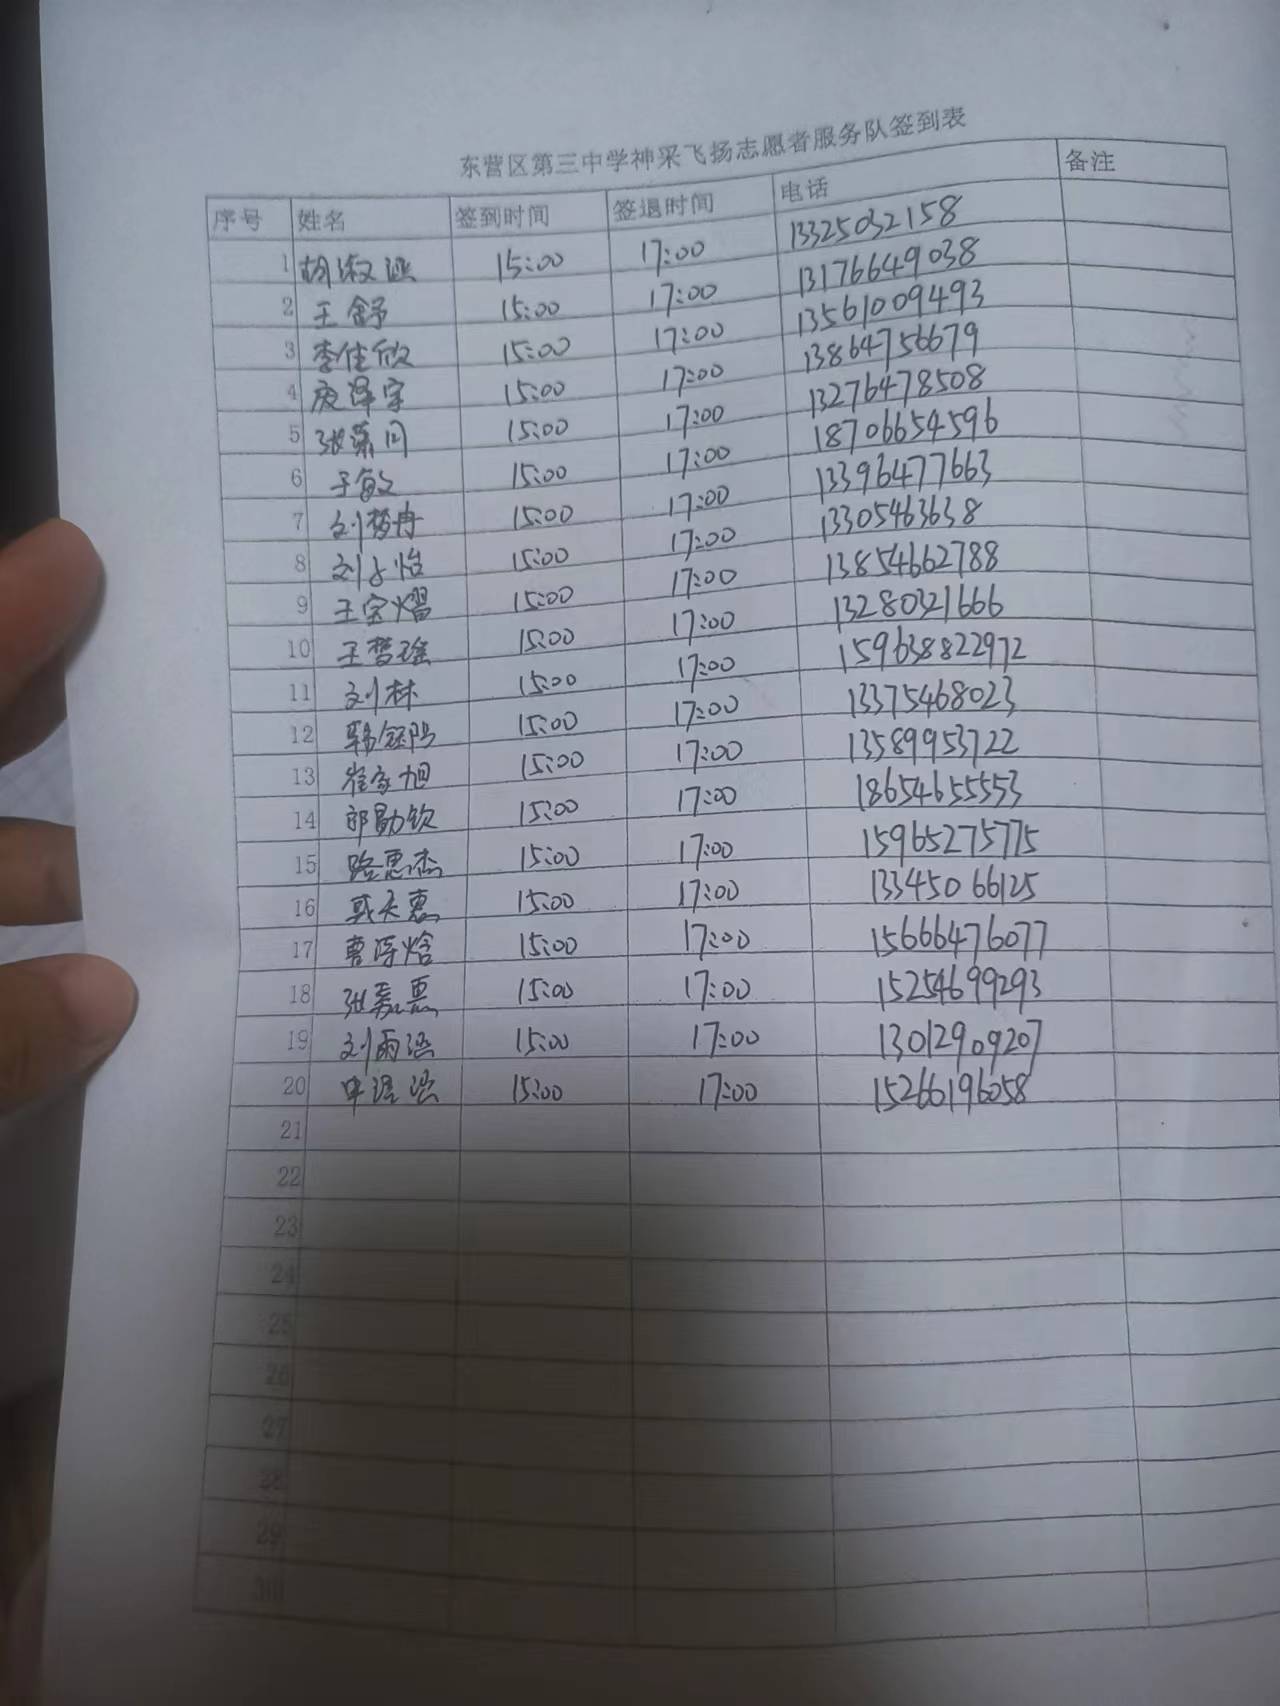 东营区第三中学神采飞扬志愿者服务队签到表
序号 姓名 签到时间 签退时间 电话 备注
1 胡淑涵 15:00 17:00 13325032158
2 王舒 15:00 17:00 13176649038
3 李佳欣 15:00 17:00 13561009493
4 泽宇 15:00 17:00 13864756679
5 张 15:00 17:00 13276478508
6 于敏 15:00 17:00 18706654596
7 刘梦冉 15:00 17:00 13396477663
8 刘 怡 15:00 17:00 13305463638
9 王 熠 15:00 17:00 13854662788
10 王梦瑶 15:00 17:00 13280321666
11 刘林 15:00 17:00 159638822972
12 韩钰阳 15:00 17:00 13375468023
13 崔家旭 15:00 17:00 13589953722
14 郎勋钦 15:00 17:00 18654655553
15 路思杰 15:00 17:00 15965275775
16 天惠 15:00 17:00 13345066125
17 曹 焓 15:00 17:00 15666476077
18 张嘉惠 15:00 17:00 15254699293
19 刘雨涵 15:00 17:00 13012909207
20 申 涵 15:00 17:00 15266196058
21
22
23
24
25
26
27
28
29
30